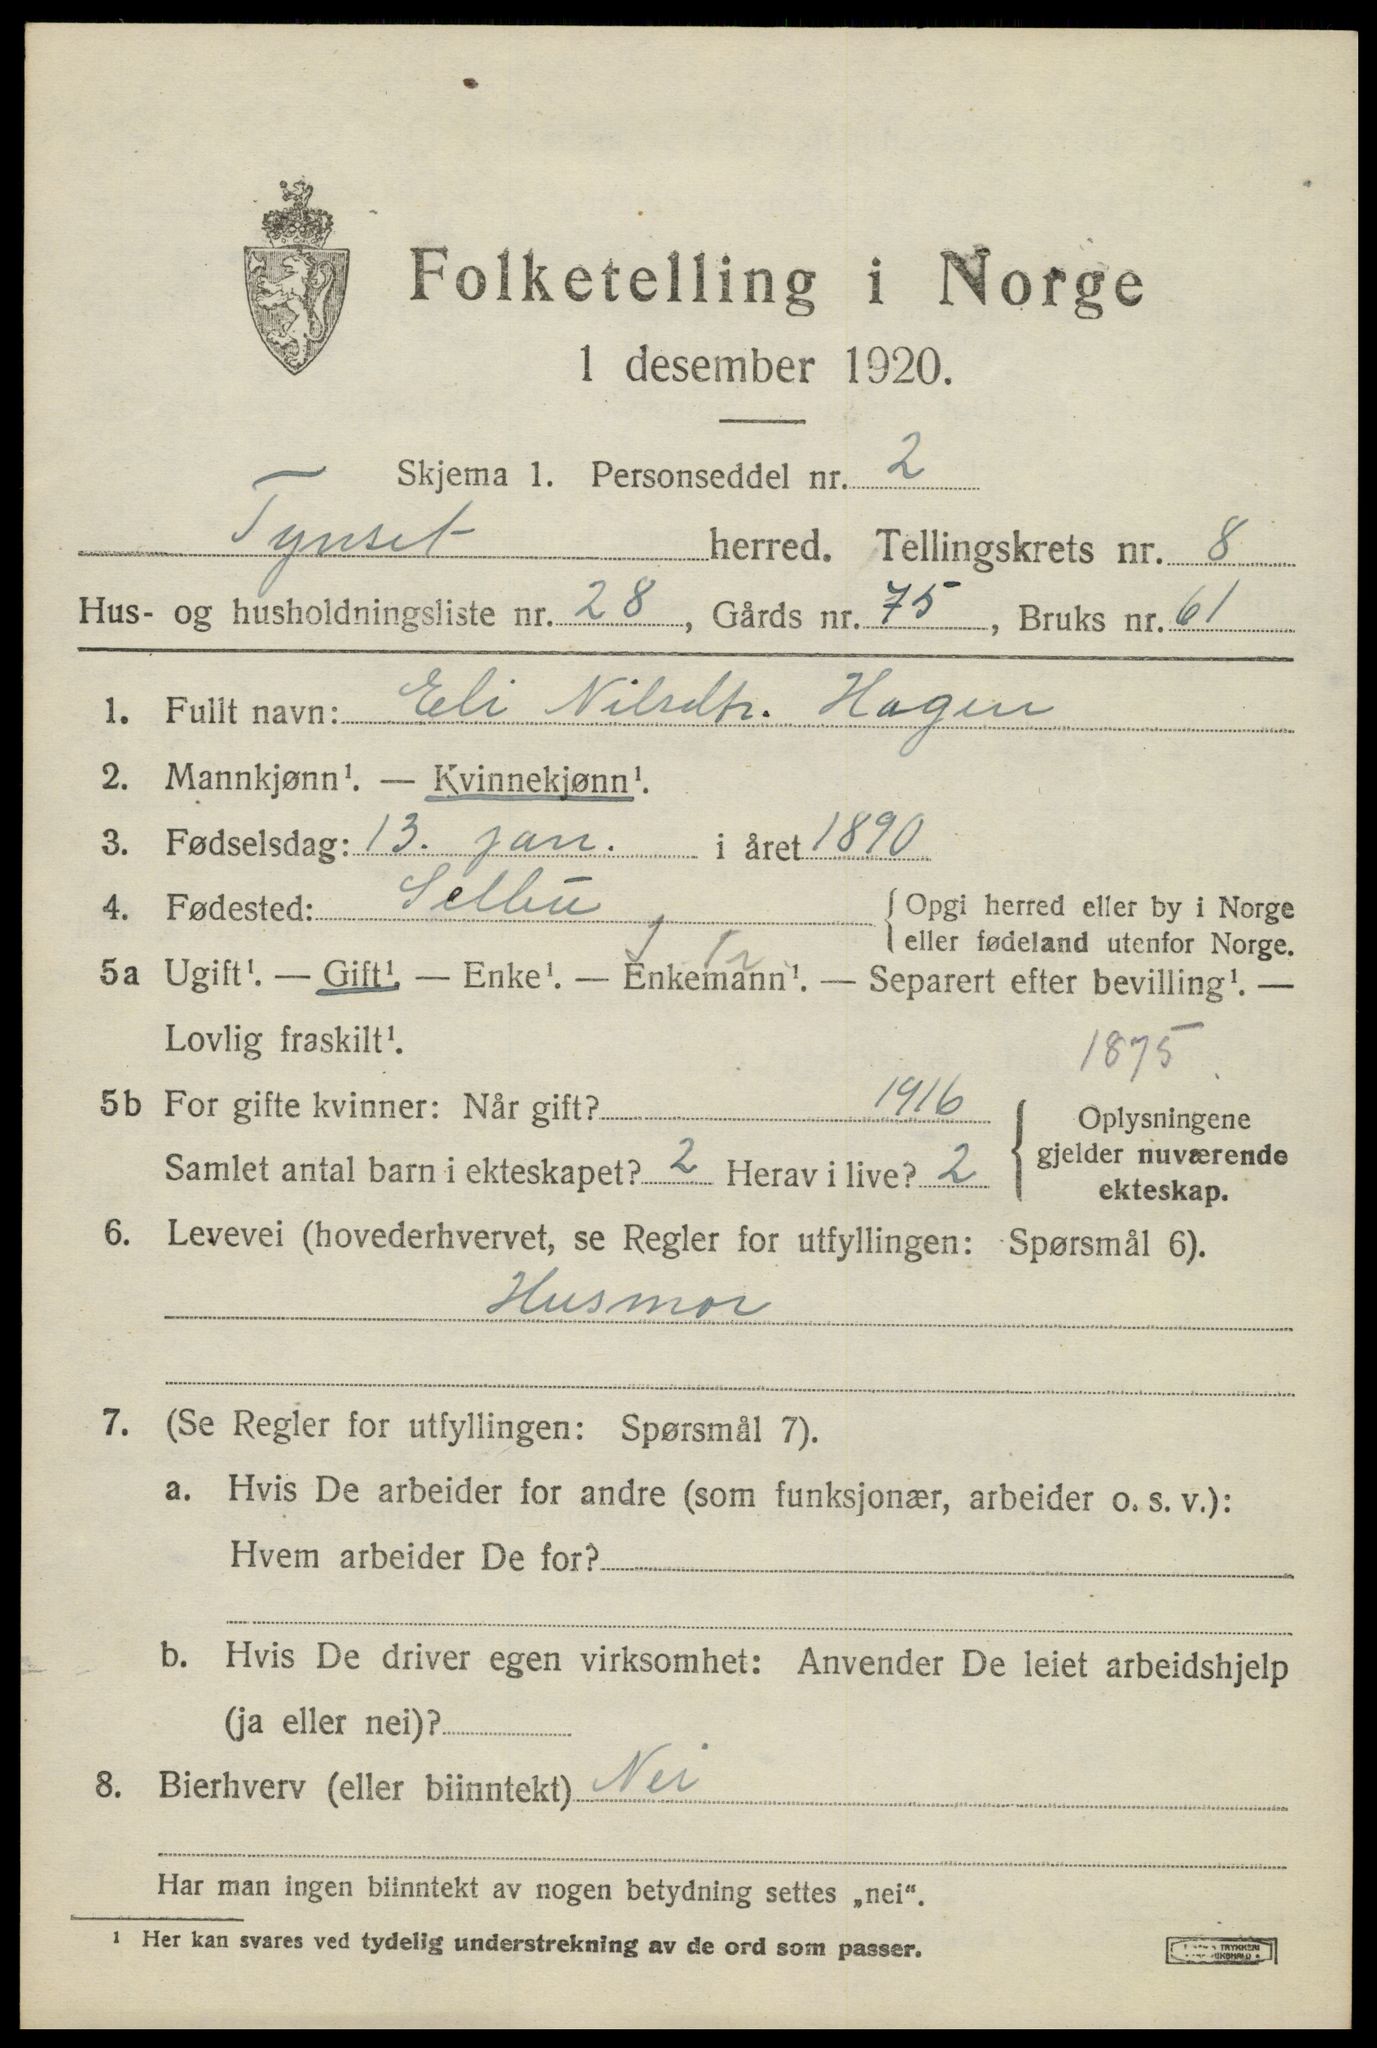 Folketelling i Norge
1 desember 1920.
Skjema 1. Personseddel nr. 2
Tynset herred. Tellingskrets nr. 8
Hus- og husholdningsliste nr. 28, Gårds nr. 75, Bruks nr. 61
1. Fullt navn: Eli Nilsdtr. Hagen
2. Mannkjønn¹. — Kvinnekjønn¹.
3. Fødselsdag: 13. jan. i året 1890
4. Fødested: Selbu { Opgi herred eller by i Norge
eller fødeland utenfor Norge.
5a Ugift¹. — Gift¹. — Enke¹. — Enkemann¹. — Separert efter bevilling¹. —
Lovlig fraskilt¹.
1875
5b For gifte kvinner: Når gift? 1916
Samlet antal barn i ekteskapet? 2 Herav i live? 2
Oplysningene
gjelder nuværende
ekteskap.
6. Levevei (hovederhvervet, se Regler for utfyllingen: Spørsmål 6).
Husmor
7. (Se Regler for utfyllingen: Spørsmål 7).
a. Hvis De arbeider for andre (som funksjonær, arbeider o. s. v.):
Hvem arbeider De for?
b. Hvis De driver egen virksomhet: Anvender De leiet arbeidshjelp
(ja eller nei)?
8. Bierhverv (eller biinntekt) Nei
Har man ingen biinntekt av nogen betydning settes „nei“.
¹ Her kan svares ved tydelig understrekning av de ord som passer.
TRYKKERI